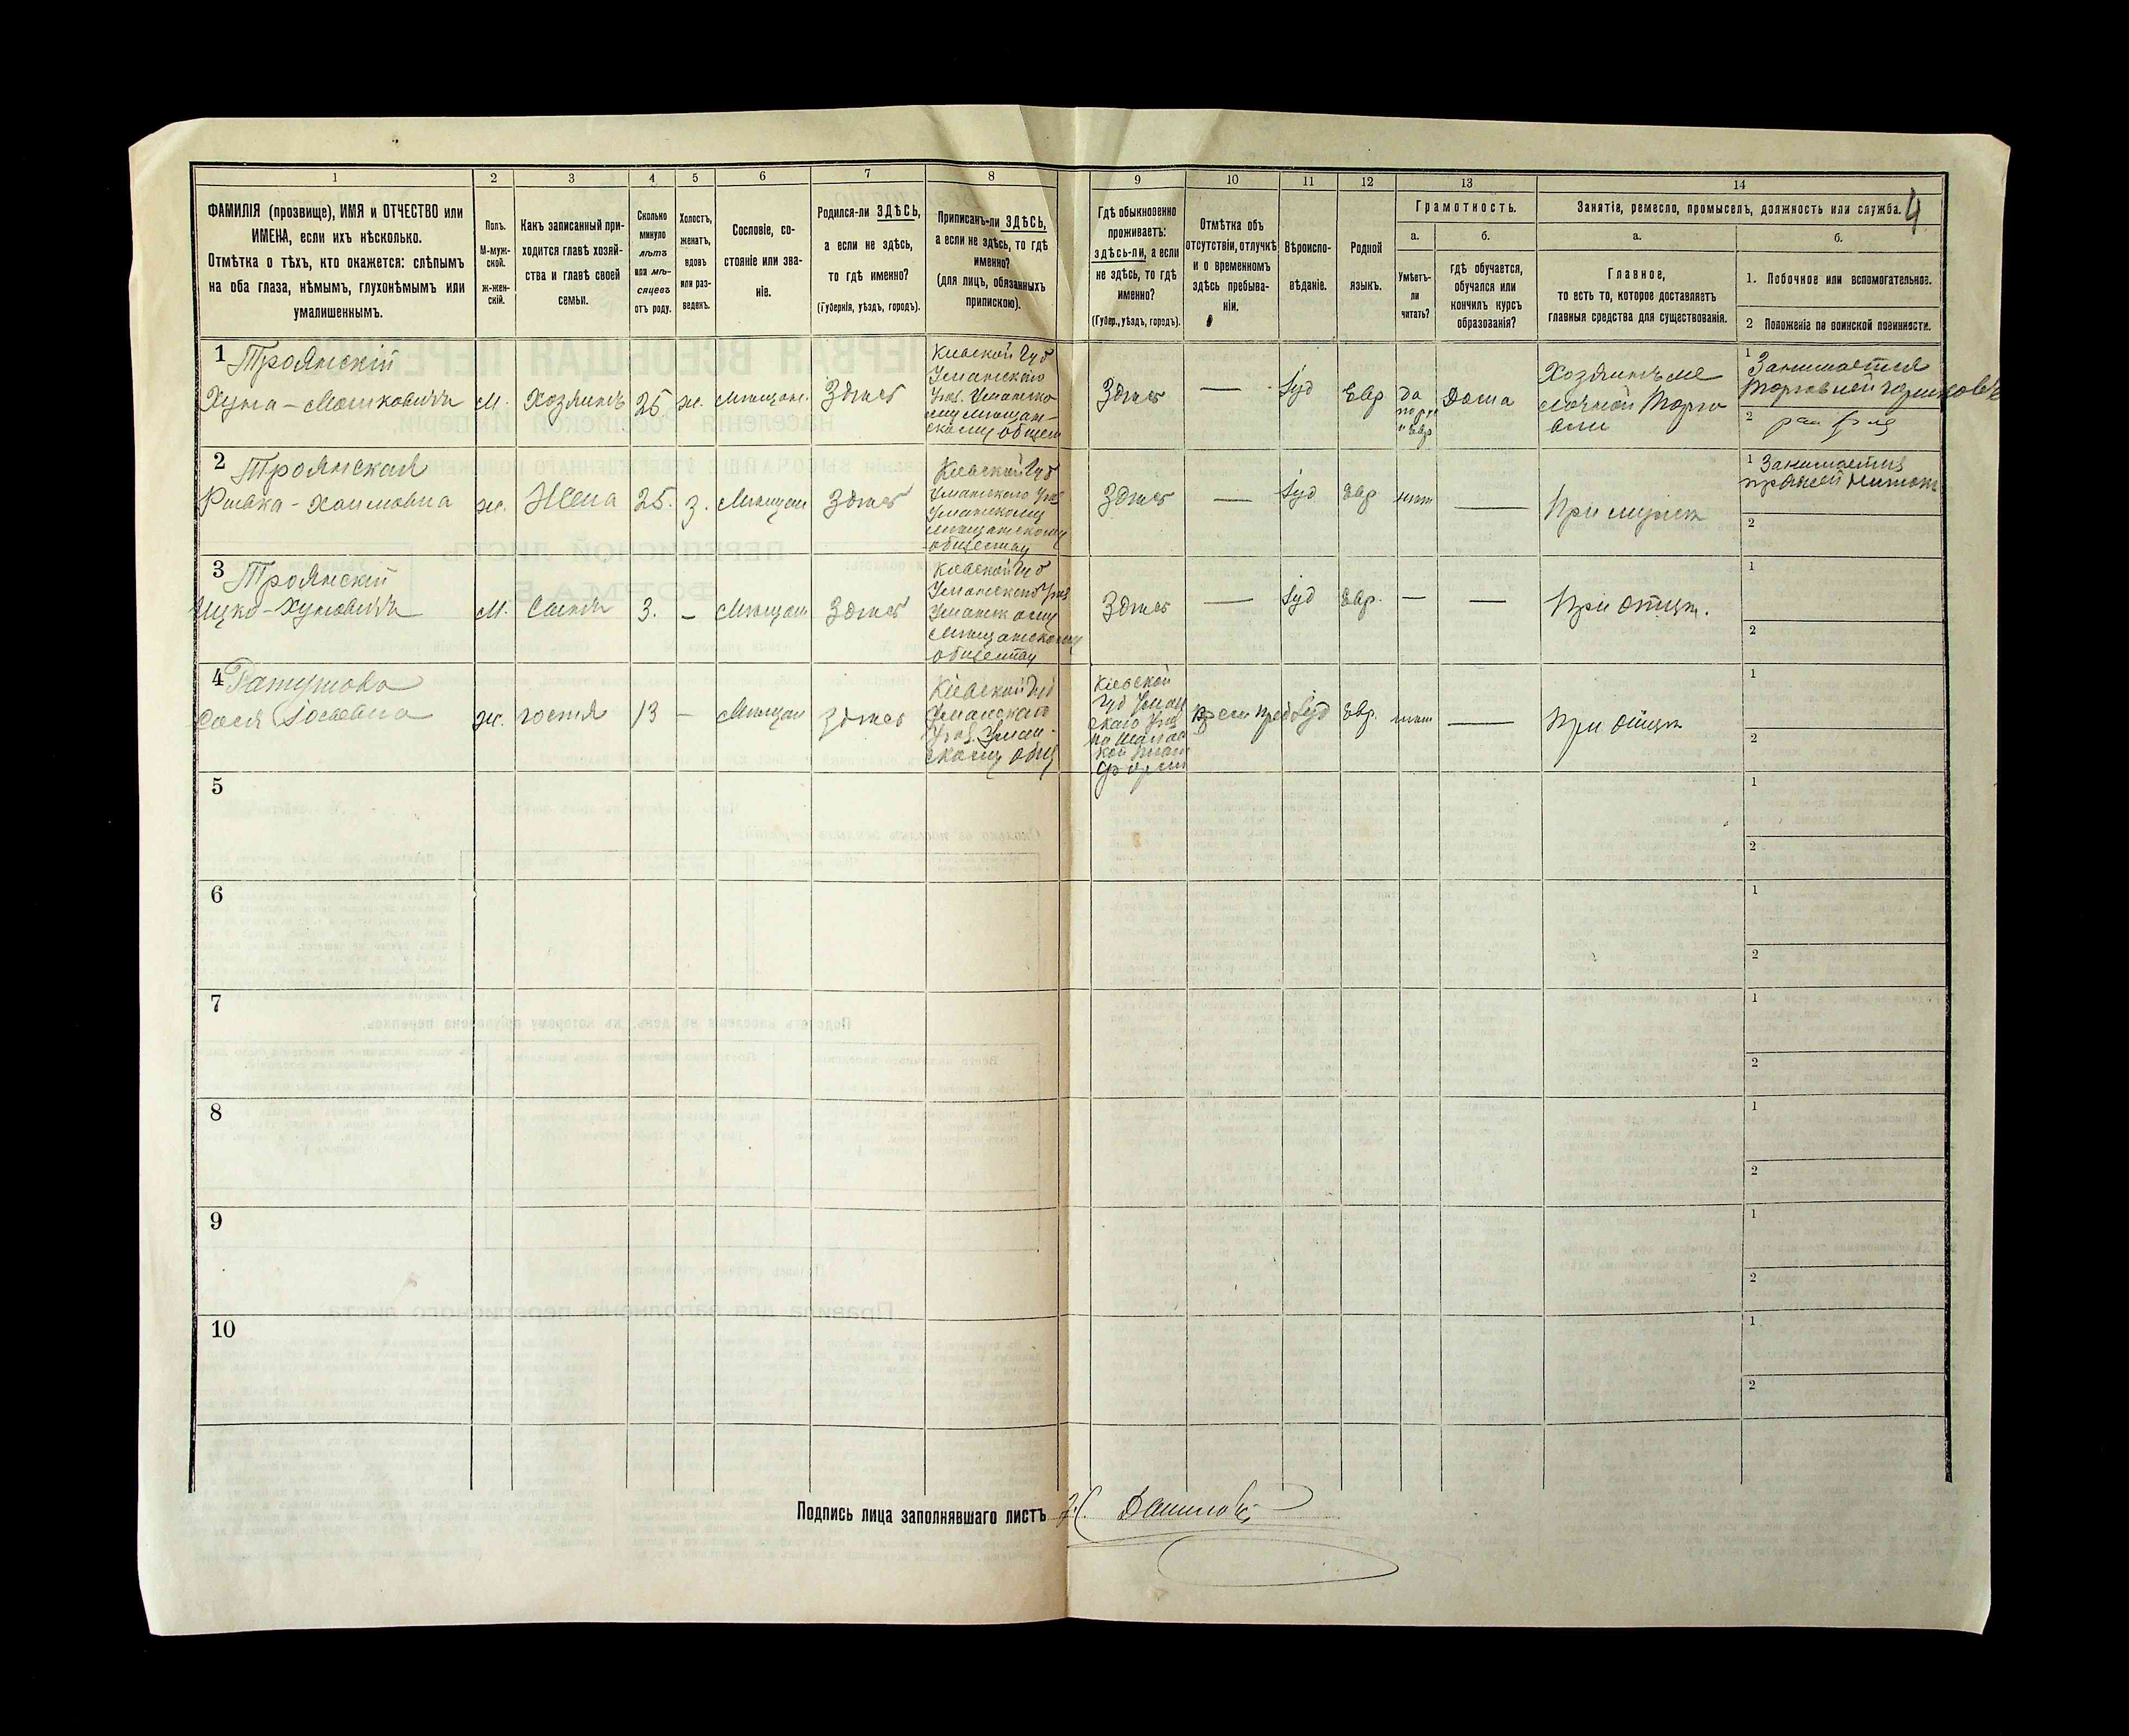 1 2 3 4 5 6 7 8 9 10 11 12 13 14
4
ФАМИЛІЯ (прозвище), ИМЯ и ОТЧЕСТВО или
ИМЕНА, если ихъ нѣсколько.
Отмѣтка о тѣхъ, кто окажется: слѣпымъ
на оба глаза, нѣмымъ, глухонѣмымъ или
умалишеннымъ.
Полъ.
М-муж-
ской.
ж-жен-
скій.
Какъ записанный при-
ходится главѣ хозяй-
ства и главѣ своей
семьи.
Сколько
минуло
лѣтъ
или мѣ-
сяцевъ
отъ роду.
Холостъ,
женатъ,
вдовъ
или раз-
веденъ.
Сословіе, со-
стояніе или зва-
ніе.
Родился-ли ЗДѢСЬ,
а если не здѣсь,
то гдѣ именно?
(Губернія, уѣздъ, городъ).
Приписанъ-ли ЗДѢСЬ,
а если не здѣсь, то гдѣ
именно?
(для лицъ, обязанныхъ
припискою).
Гдѣ обыкновенно
проживаетъ:
здѣсь-ли, а если
не здѣсь, то гдѣ
именно?
(Губер., уѣздъ, городъ).
Отмѣтка объ
отсутствіи, отлучкѣ
и о временномъ
здѣсь пребыва-
ніи.
Вѣроиспо-
вѣданіе.
Родной
языкъ.
Грамотность.
а.
Умѣетъ-
ли
читать?
б.
гдѣ обучается,
обучался или
кончилъ курсъ
образованія?
Занятіе, ремесло, промыселъ, должность или служба.
а.
Главное,
то есть то, которое доставляетъ
главныя средства для существованія.
б.
1. Побочное или вспомогательное.
2 Положеніе по воинской повинности.
1 Троянскій
Хуна-Мошковичъ
м.
Хозяинъ
25
ж.
Мѣщан.
Здѣсь
Кіевской Губ
Уманскаго
Уѣз. Уманско
му мѣщан-
скому общест
Здѣсь
—
Іуд
Евр
да
Дома
Хозяинъ ме
лочной торго
вли
1 Занимается
торговлей
2
2 Троянская
Ривка-Хаимовна
ж.
Жена
25.
з.
Мѣщан
Здѣсь
Кіевской Губ
Уманскаго Уѣз
Уманскому
мѣщанскому
обществу
Здѣсь
—
Іуд
Евр
нѣт
—
При мужѣ
1 Занимается
пряжей нитокъ
2
3 Троянскій
Ицко-Хуновичъ
м.
Сынъ
3.
—
Мѣщан
Здѣсь
Кіевской Губ
Уманскаго Уѣз
Уманскому
мѣщанскому
обществу
Здѣсь
—
Іуд
Евр.
—
—
При отцѣ.
1
2
4
ж.
гостя
13
—
Мѣщан
Здѣсь
Кіевской Губ
Уманскаго
Уѣз. Уман-
скому общ
Кіевской
Губ Уман
скаго Уѣз
Іуд
Евр.
нѣт
—
При отцѣ
1
2
5
1
2
6
1
2
7
1
2
8
1
2
9
1
2
10
1
2
Подпись лица заполнявшаго листъ